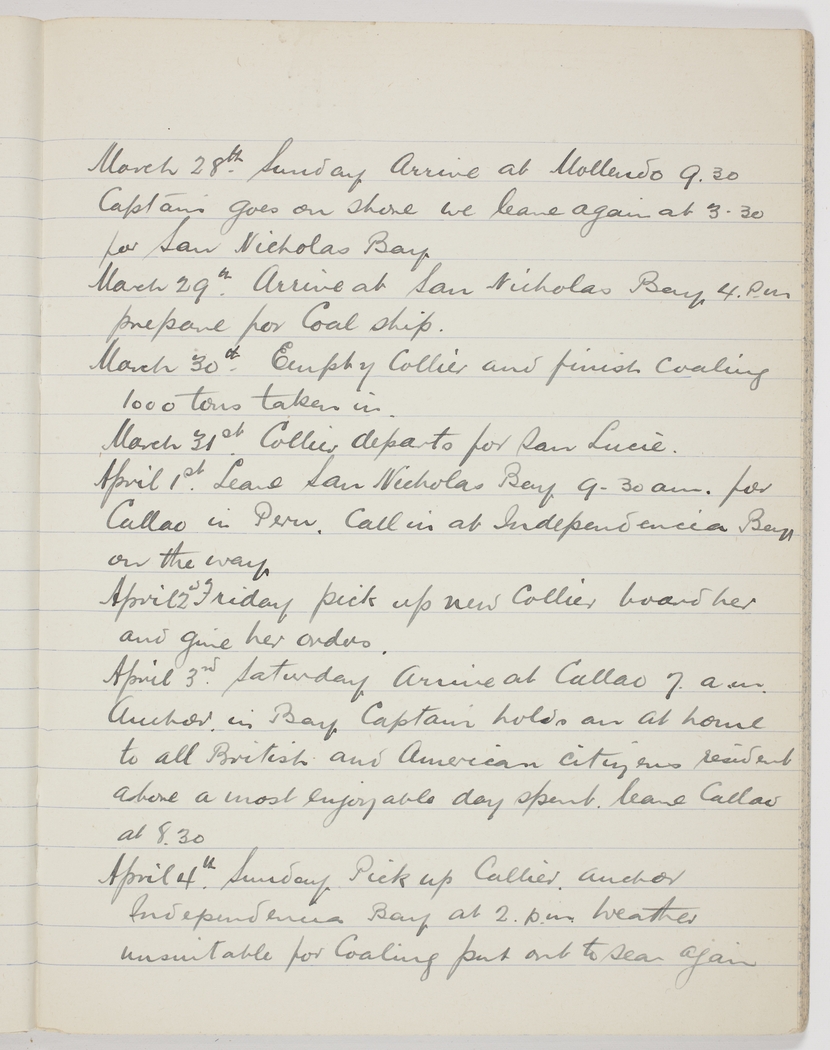 March 28th. Sunday Arrive at Mollendo 9.30
Captain goes on shore we leave again at 3-30
for San Nicholas Bay
March 29th. Arrive at San Nicholas Bay 4. P.m
prepare for Coal ship.
March 30th. Empty Collier and finish Coaling
1000 tons taken in.
March 31st. Collier departs for San Lucie.
April 1st. Leave San Nicholas Bay 9-30 am. for
Callao in Peru. Call in at Independencia Bay
on the way
April 2nd Friday pick up new Collier board her
and give her orders.
April 3rd. Saturday Arrive at Callao 7. a.m.
Anchor in Bay Captain holds an at home
to all British and American citizens resident
ashore a most enjoyable day spent. leave Callao
at 8.30
April 4th. Sunday Pick up Collier. anchor
Independencia Bay at 2. p.m Weather
unsuitable for Coaling put out to sea again